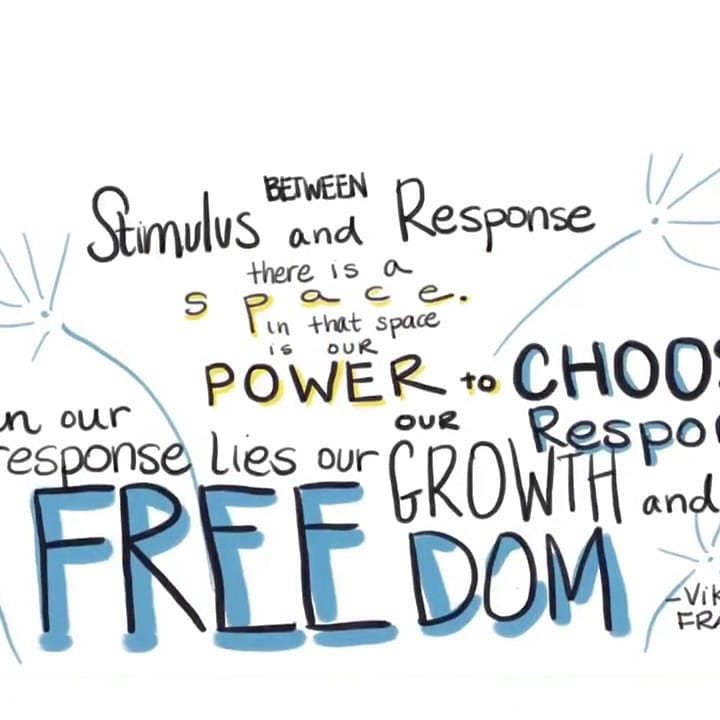 BETWEEN
Stimulus and Response
there is a
space.
in that space
is OUR
POWER to CHOOS
OUR Respo
n our
response Lies our GROWTH and
FREEDOM
-Vik
FRA